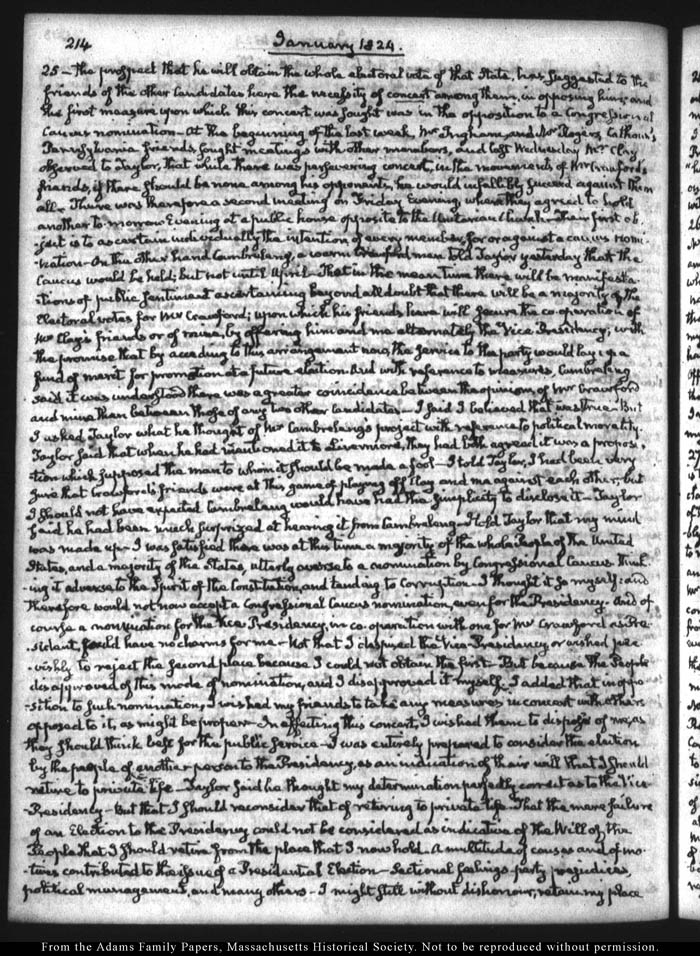 214
January 1824.
25 – The prospect that he will obtain the whole electoral vote of that State, has suggested to the
friends of the other Candidates here the necessity of concert among them, in opposing him; and
the first measure upon which this concert was sought was in the opposition to a Congressional
Caucus nomination – At the beginning of the last week, Mr Ingham, and Mr Rogers, Calhoun's
Pennsylvania friends, sought meetings with other members, and last Wednesday Mr Clay
observed to Taylor, that while there was persevering concert, in the movements of Mr Crawford's
friends, if there should be none among his opponents, he would infallibly succeed against them
all. There was therefore a second meeting on Friday Evening, where they agreed to hold
another to-morrow Evening at a public house opposite to the Unitarian Church – Their first ob-
-ject is to ascertain individually the intention of every member, for or against a caucus nomi-
-nation – On the other hand Cambreleng, a warm Crawford man told Taylor yesterday that the
Caucus would be held; but not until April – That in the mean time there will be manifesta-
-tions of public sentiment ascertaining beyond all doubt that there will be a majority of the
Electoral votes for Mr Crawford; upon which his friends here will secure the co-operation of
Mr Clay's friends or of mine, by offering him and me alternately the Vice Presidency; with
the promise that by acceding to this arrangement now, the service to the party would lay up a
fund of merit for promotion at a future election. And with reference to measures, Cambreleng
said it was understood there was a greater coincidence between the opinions of Mr Crawford
and mine than between those of any two other Candidates – I said I believed that was true – But
I asked Taylor what he thought of Mr Cambreleng's project with reference to political morality.
Taylor said that when he had mentioned it to Livermore, they had both agreed it was a proposi-
-tion which supposed the man to whom it should be made a fool – I told Taylor, I had been very
sure that Crawford's friends were at this game of playing off Clay and me against each other, but
I should not have expected Cambreleng would have had the simplicity to disclose it – Taylor
said he had been much surprized at hearing it from Cambreleng – I told Taylor that my mind
was made up – I was satisfied there was at this time a majority of the whole People of the United
States, and a majority of the States, utterly averse to a nomination by Congressional Caucus, think-
-ing it adverse to the Spirit of the Constitution, and tending to Corruption – I thought it so myself; and
therefore would not now accept a Congressional Caucus nomination, even for the Presidency. And of
course a nomination for the Vice Presidency, in co-operation with one for Mr Crawford as Pre-
-sident, could have no charms for me – Not that I despised the Vice-Presidency, or wished pee-
-vishly to reject the second place because I could not obtain the first – But because the People
disapproved of this mode of nomination, and I disapproved it myself. I added that in oppo-
-sition to such nomination, I wished my friends to take any measures in concert with others
opposed to it, as might be proper – In effecting this concert, I wished them to dispose of me, as
they should think best for the public service – I was entirely prepared to consider the election
by the people of another person to the Presidency, as an indication of their will that I should
retire to private life – Taylor said he thought my determination perfectly correct as to the Vice-
-Presidency – But that I should reconsider that of retiring to private life. That the mere failure
of an Election to the Presidency could not be considered as indicative of the Will of the
People that I should retire from the place that I now hold. A multitude of causes and of mo-
-tives contributed to the issue of a Presidential Election – Sectional feelings, party prejudices,
political management, and many others – I might still without dishonour, retain my place
From the Adams Family Papers, Massachusetts Historical Society. Not to be reproduced without permission.